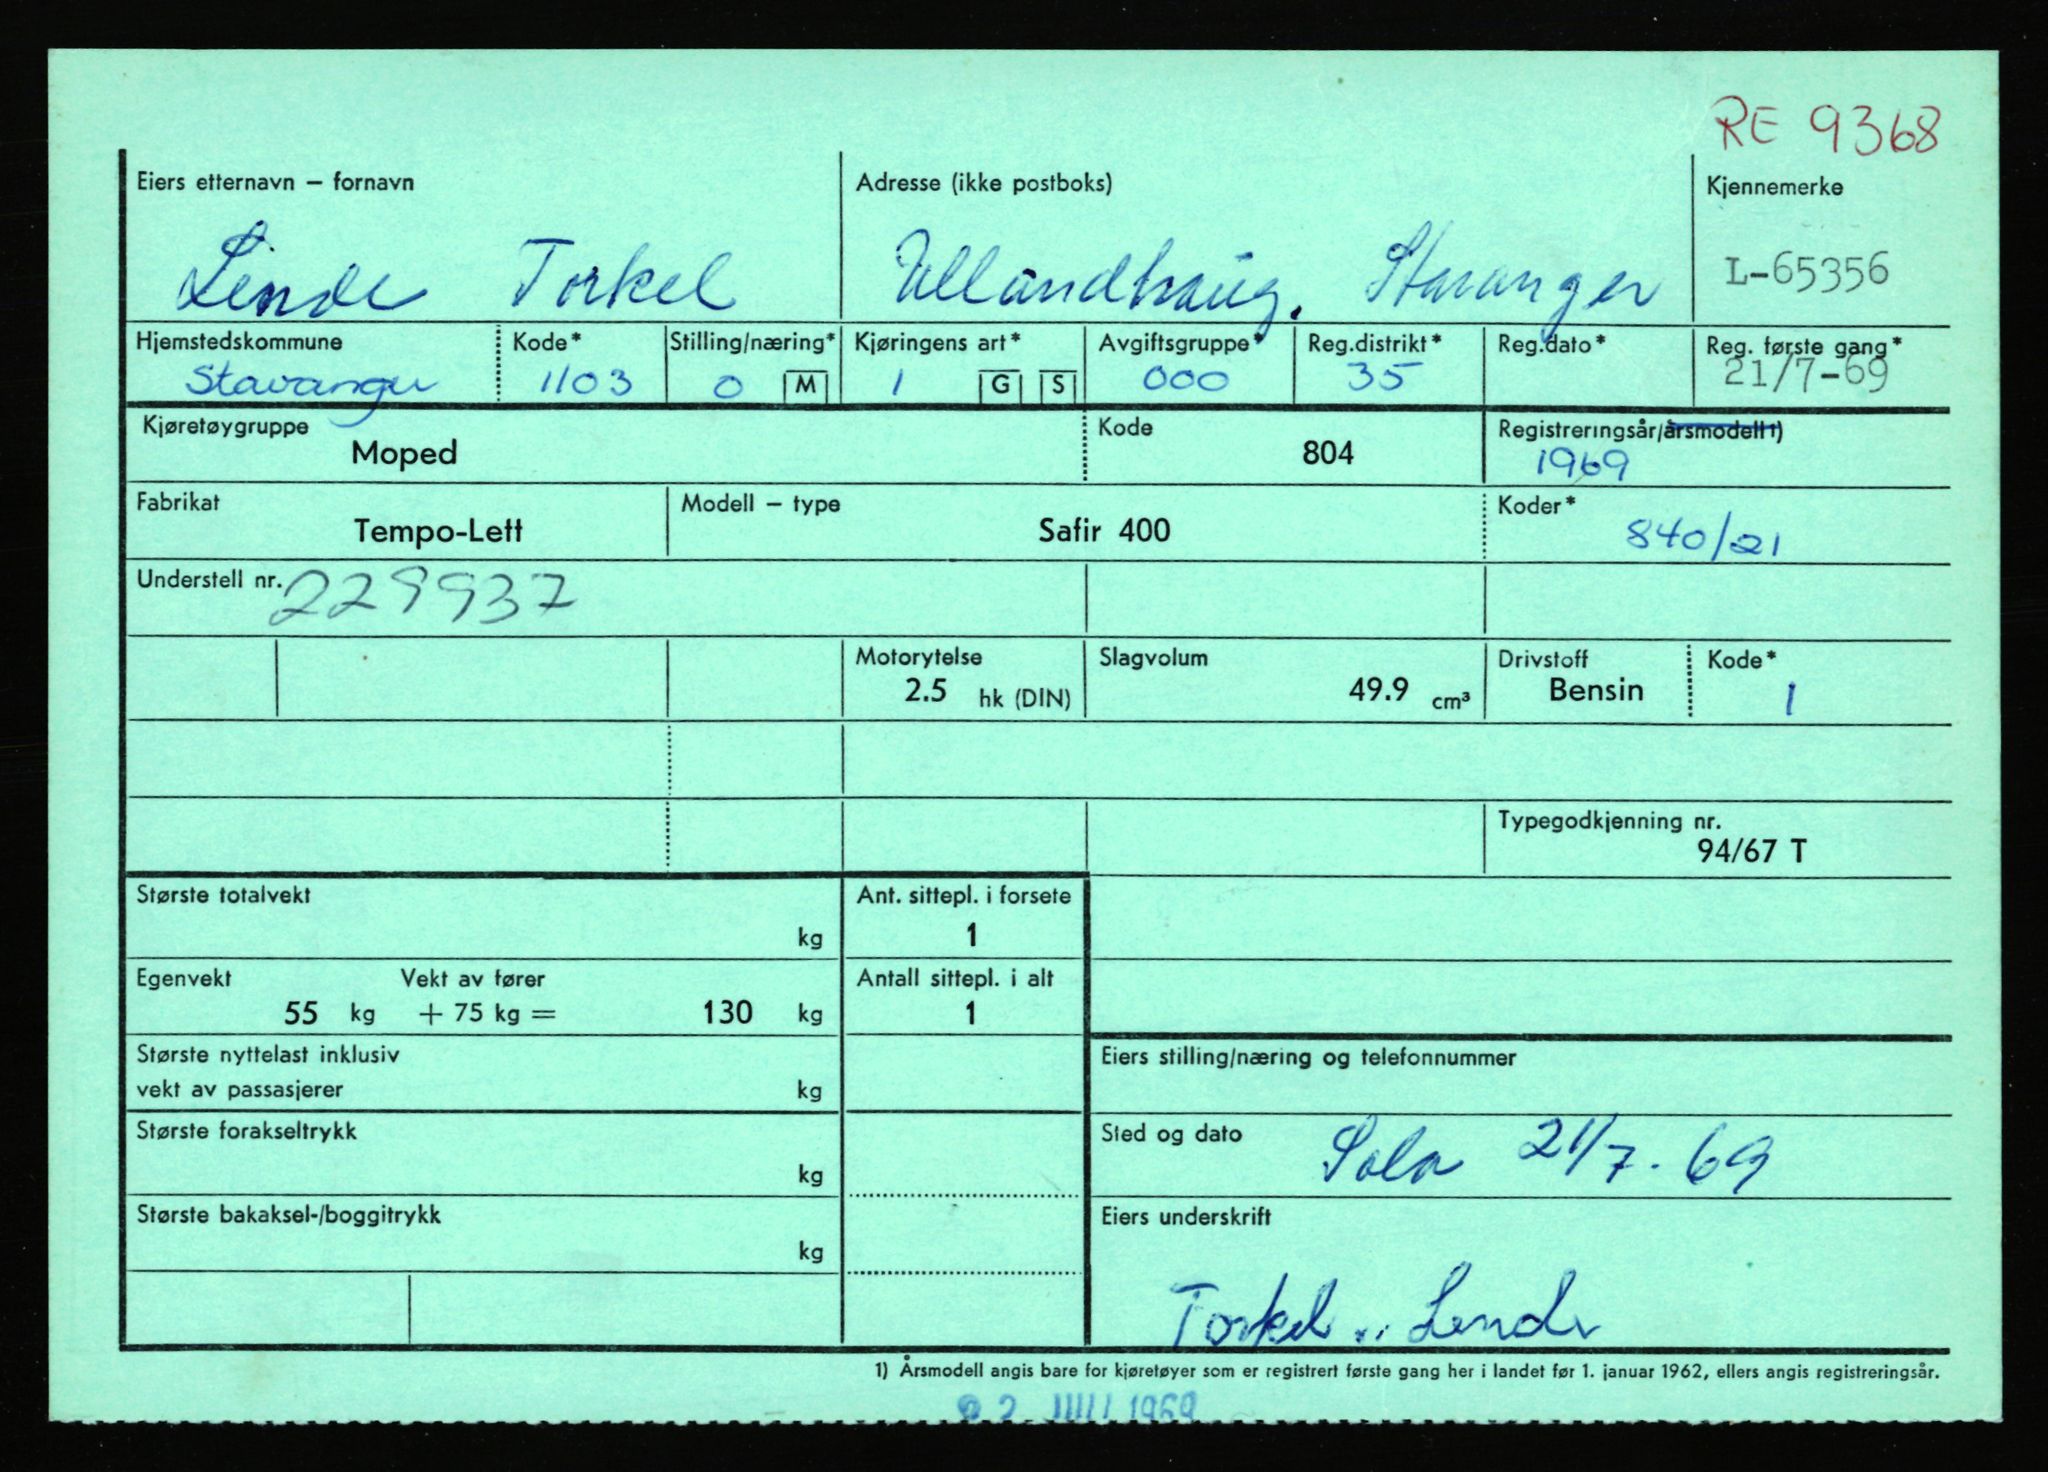 RE 9368
Eiers etternavn – fornavn Adresse (ikke postboks) Kjennemerke
Lende Torkel Ullandhaug, Stavanger L-65356
Hjemstedskommune Kode* Stilling/næring* Kjøringens art* Avgiftsgruppe* Reg.distrikt* Reg.dato* Reg. første gang*
Stavanger 1103 0 M 1 G S 000 35 21/7-69
Kjøretøygruppe Kode Registreringsår/årsmodell 1)
Moped 804 1969
Fabrikat Modell – type Koder*
Tempo-Lett Safir 400 840/21
Understell nr. 229937
Motorytelse Slagvolum Drivstoff Kode*
2.5 hk (DIN) 49.9 cm³ Bensin 1
Typegodkjenning nr.
94/67 T
Største totalvekt Ant. sittepl. i forsete
kg 1
Egenvekt Vekt av fører Antall sittepl. i alt
55 kg + 75 kg = 130 kg 1
Største nyttelast inklusiv Eiers stilling/næring og telefonnummer
vekt av passasjerer kg
Største forakseltrykk Sted og dato Sola 21/7. 69
kg
Største bakaksel-/boggitrykk Eiers underskrift
kg
Torkel Lende
1) Årsmodell angis bare for kjøretøyer som er registrert første gang her i landet før 1. januar 1962, ellers angis registreringsår.
1969